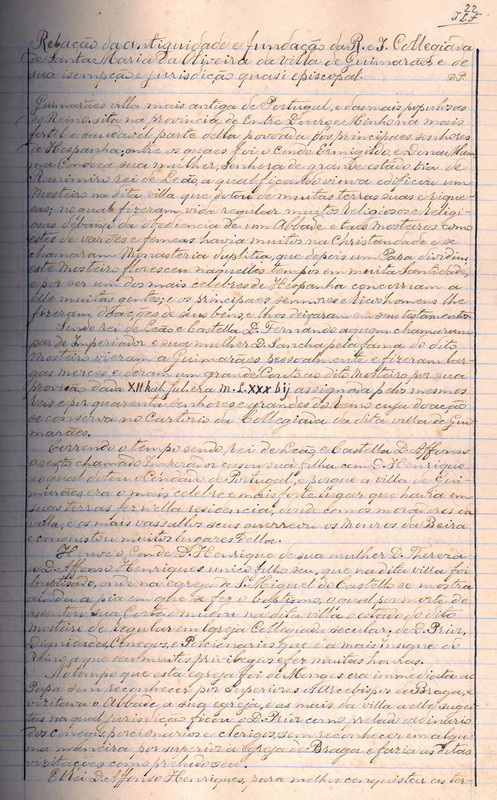 22
Relação da antiguidade e fundação da R. e I. Collegiada
de Santa Maria da Oliveira da villa de Guimarães e de
sua isempção e jurisdicção quasi episcopal.
Guimarães villa mais antiga de Portugal, e das mais populosas
do Reino, sita na provincia de Entre Douro e Minho na mais
fertil e saudavel parte della povoada dos principaes senhores
de Hespanha, entre os quaes foi o Conde Ermigildo, e Dona Muma
sua mulher, senhora de grande estado tia de
Ramimiro rei de Leão, a qual ficando viuva edificou um
Mosteiro na dita villa que dotou de muitas terras suas e rique-
sas; no qual fizeram vida regular muitos religiosos e religi-
osas debaixo da obediencia de um Abbade e taes mosteiros como
estes de varões e femeas havia muitos na Christandade e se
chamaram Monasteria duplitia, que depois um Papa dividiu,
este Mosteiro floresceu naquelles tempos em muita santidade,
e por ser um dos mais celebres de Hespanha concorriam a
elle muitas gentes; e os principaes senhores e ricos homens lhe
fizeram doações de seus bens, e lhos deixaram em seus testamentos.
Sendo rei de Leão e Castella D. Fernando a quem chamaram
par de Imperador e sua mulher D. Sancha pela fama do dito
Mosteiro vieram a Guimarães pessoalmente e fizeram lar-
gas mercês e deram um grande Couto ao dito Mosteiro por sua
provisão dada XII kal. jul. era m. L. xxx bij assignada pelos mesmos
Reis e por quarenta senhores e grandes do Reino cuja doação
se conserva no Cartorio da Collegiada da dita villa de Gui-
marães.
Correndo o tempo sendo rei de Leão e Castella D. Affonso
o sexto chamado Imperador casou sua filha com D. Henrique
ao qual dotou o Condado de Portugal, e porque a villa de Gui-
marães era o mais celebre e mais forte lugar que havia em
suas terras fez nella residencia, donde com os moradores da
villa, e os mais vassallos seus guerreou os Mouros da Beira
e conquistou muitos lugares della.
Houve o Conde D. Henrique de sua mulher D. Thereza
a D. Affonso Henriques unico filho seu, que na dita villa foi
bautisado, onde na egreja de S. Miguel do Castello se mostra
ainda a pia em que se fez o baptismo, o qual por morte de
assentou sua Corte e mudou na dita villa o estado do dito
mosteiro de regular em Igreja Collegiada secular, de D. Prior,
Dignidades, Conegos, e Porcionarios que é a mais insigne do
Reino, a que deu muitos privilegios e fez muitas honras.
No tempo que esta egreja foi de Monges era immediata ao
Papa sem reconhecer por superiores os Arcebispos de Braga, e
visitava o Abbade a sua egreja, e as mais da villa a elle sugei-
tas na qual jurisdicção ficou o D. Prior como prelado ordinario
dos conegos, porcionarios e clerigos, sem reconhecer em algu-
ma maneira por superior a Igreja de Braga e fazia as ditas
visitações como prelado seu.
El Rei D. Affonso Henriques, para melhor conquistar as ter-